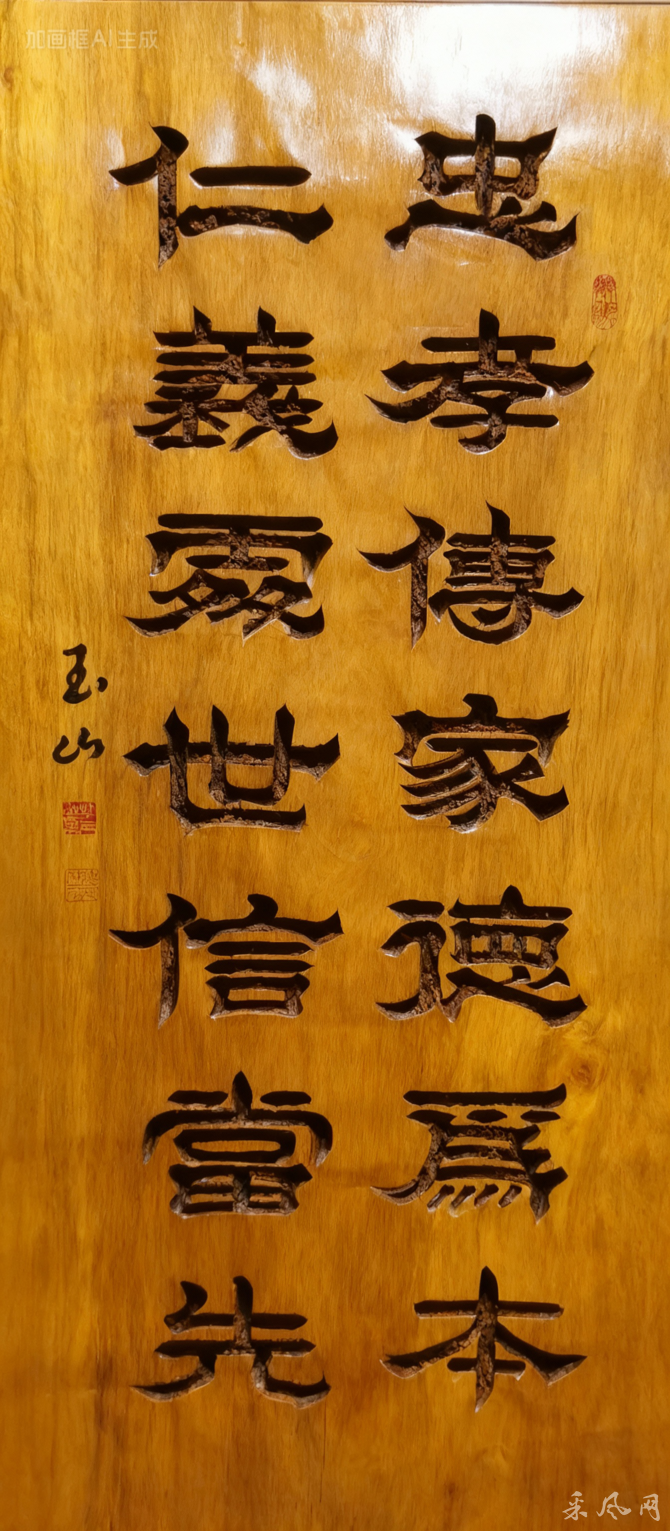 加画框AI生成
忠孝傳家德爲本
仁義處世信當先
玉山
采风网